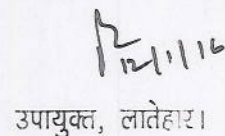 12/1/16
उपायुक्त, लातेहार।